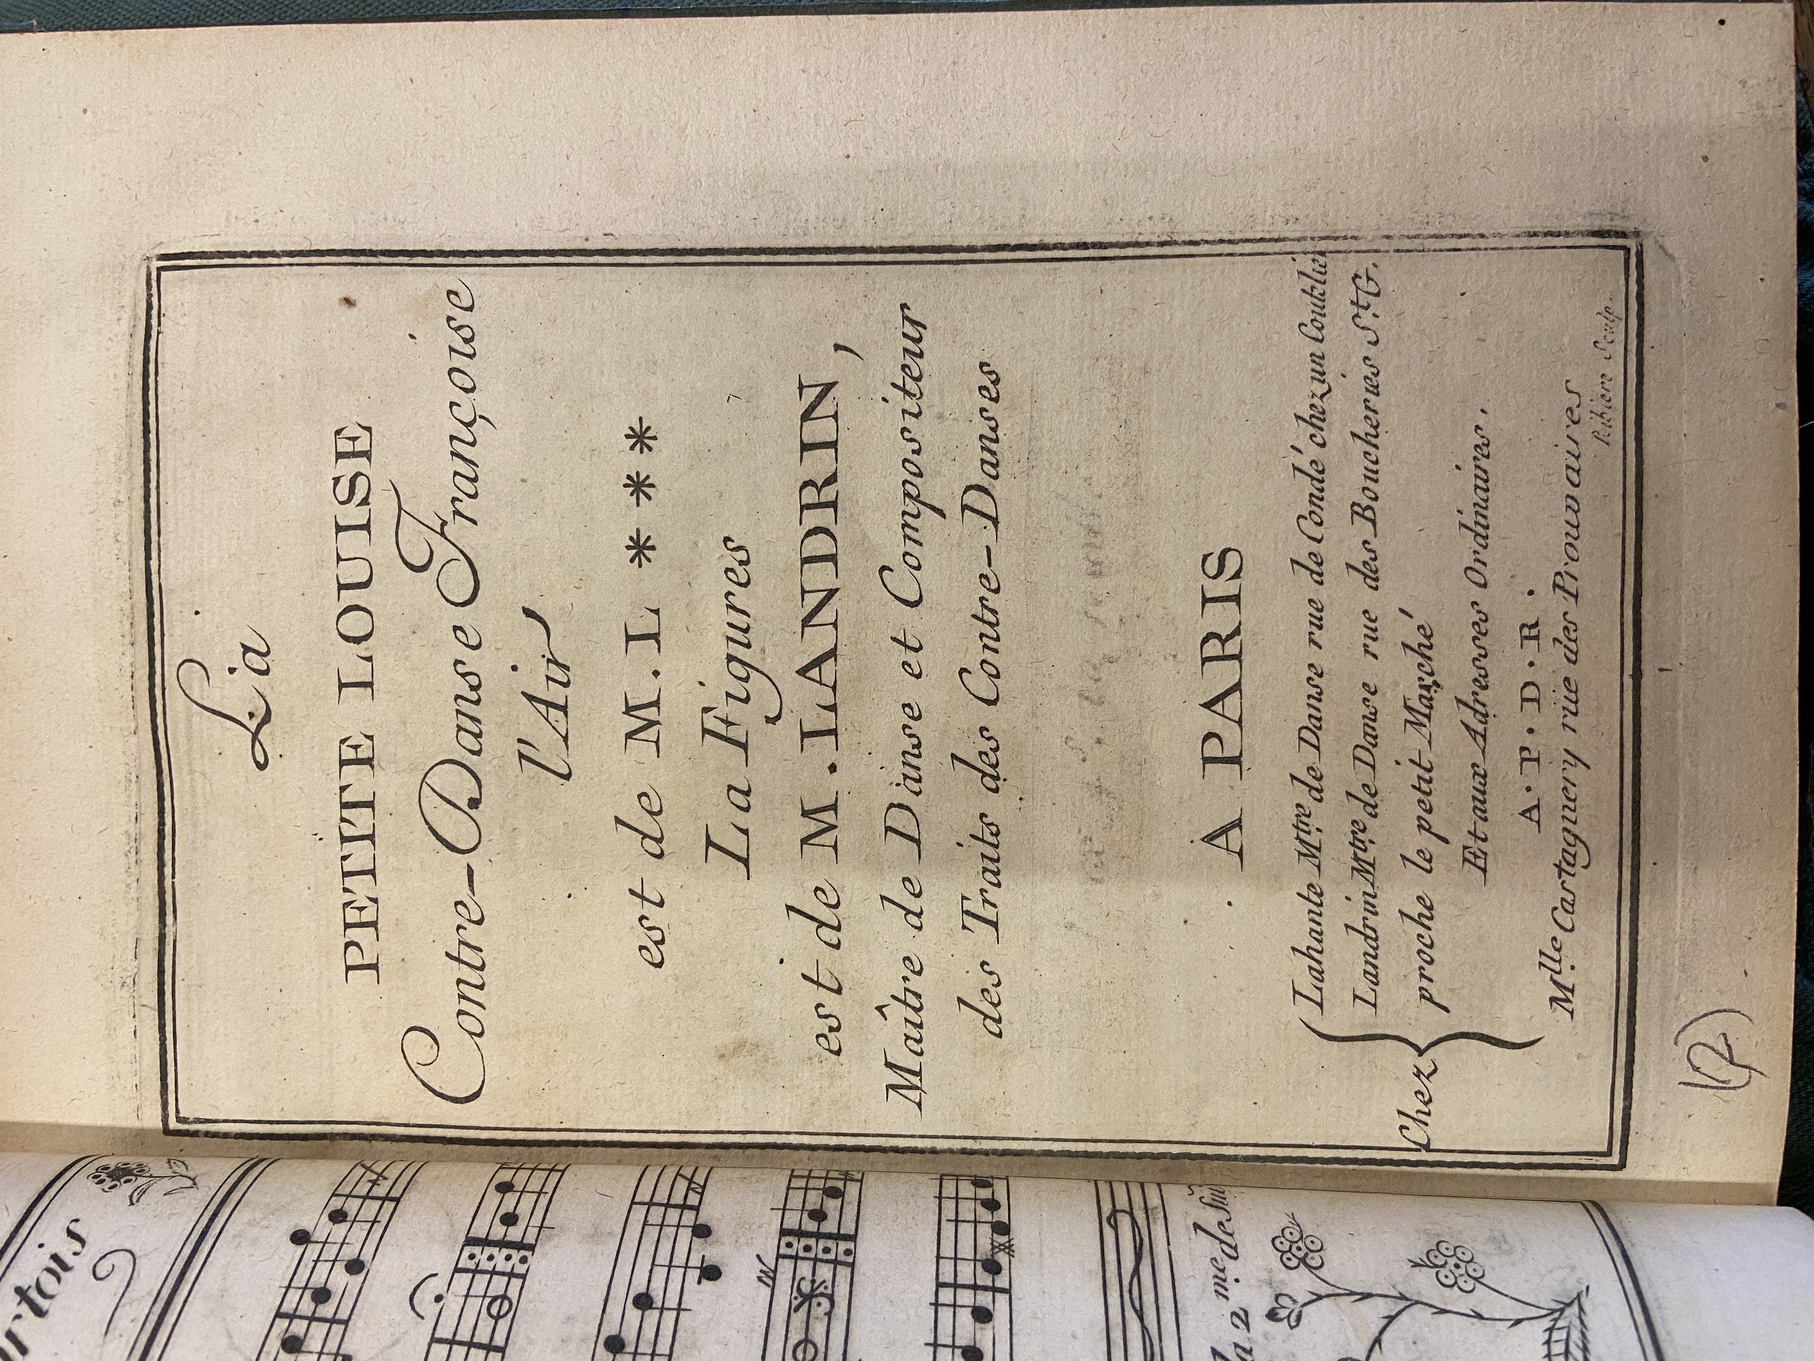 La
PETITE LOUISE
Contre-Danse Françoise
l'Air
est de M. L * * *
La Figures
est de M. LANDRIN,
Maître de Danse et Compositeur
des Traits des Contre-Danses
A PARIS
Chez
Lahante Mtre. de Danse rue de Condé chez un Coutelier
Landrin Mtre. de Danse rue des Boucheries St. G.
proche le petit Marché
Et aux Adresses Ordinaires.
A. P. D. R.
Mlle. Cartaguery rue des Prouvaires
Sculp.
artois
la 2me. de